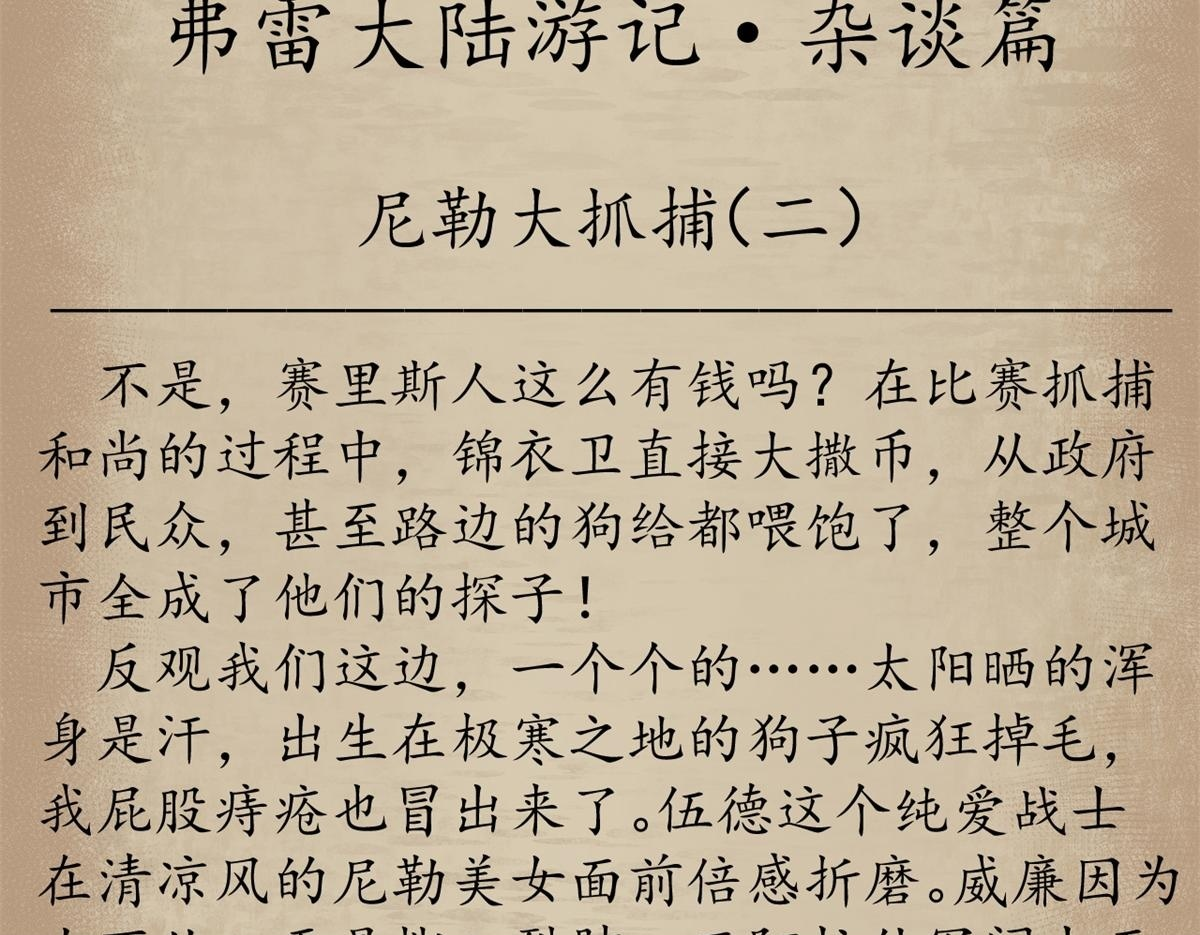 弗雷大陆游记·杂谈篇
尼勒大抓捕(二)
不是，赛里斯人这么有钱吗？在比赛抓捕
和尚的过程中，锦衣卫直接大撒币，从政府
到民众，甚至路边的狗给都喂饱了，整个城
市全成了他们的探子！
反观我们这边，一个个的……太阳晒的浑
身是汗，出生在极寒之地的狗子疯狂掉毛，
我屁股痔疮也冒出来了。伍德这个纯爱战士
在清凉风的尼勒美女面前倍感折磨。威廉因为